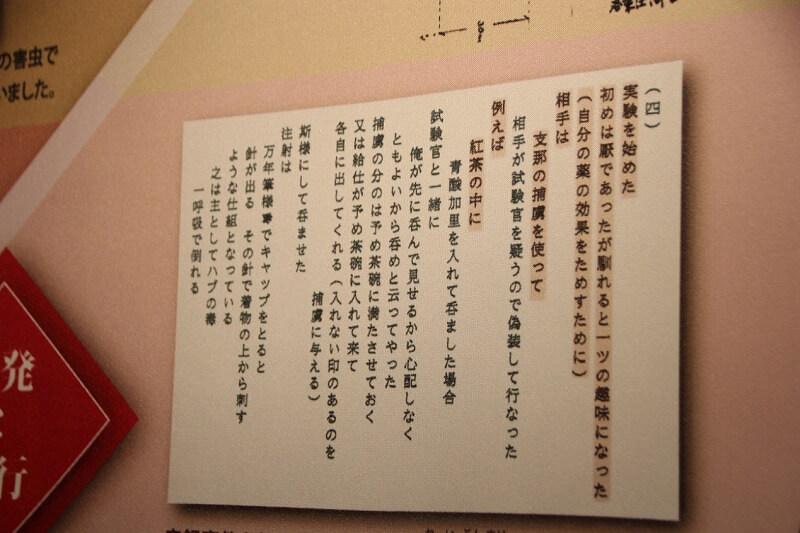 の害虫で
いました。
30m
（四）
実験を始めた
初めは厭であったが馴れると一ツの趣味になった
（自分の薬の効果をためすために）
相手は
支那の捕虜を使って
相手が試験官を疑うので偽装して行なった
例えば
紅茶の中に
青酸加里を入れて呑ました場合
試験官と一緒に
俺が先に呑んで見せるから心配しなく
ともよいから呑めと云ってやった
捕虜の分のは予め茶碗に満たさせておく
又は給仕が予め茶碗に入れて来て
各自に出してくれる（入れない印のあるのを
捕虜に与える）
斯様にして呑ませた
注射は
万年筆様＊でキャップをとると
針が出る　その針で着物の上から刺す
ような仕組となっている
之は主としてハブの毒
一呼吸で倒れる
発
行